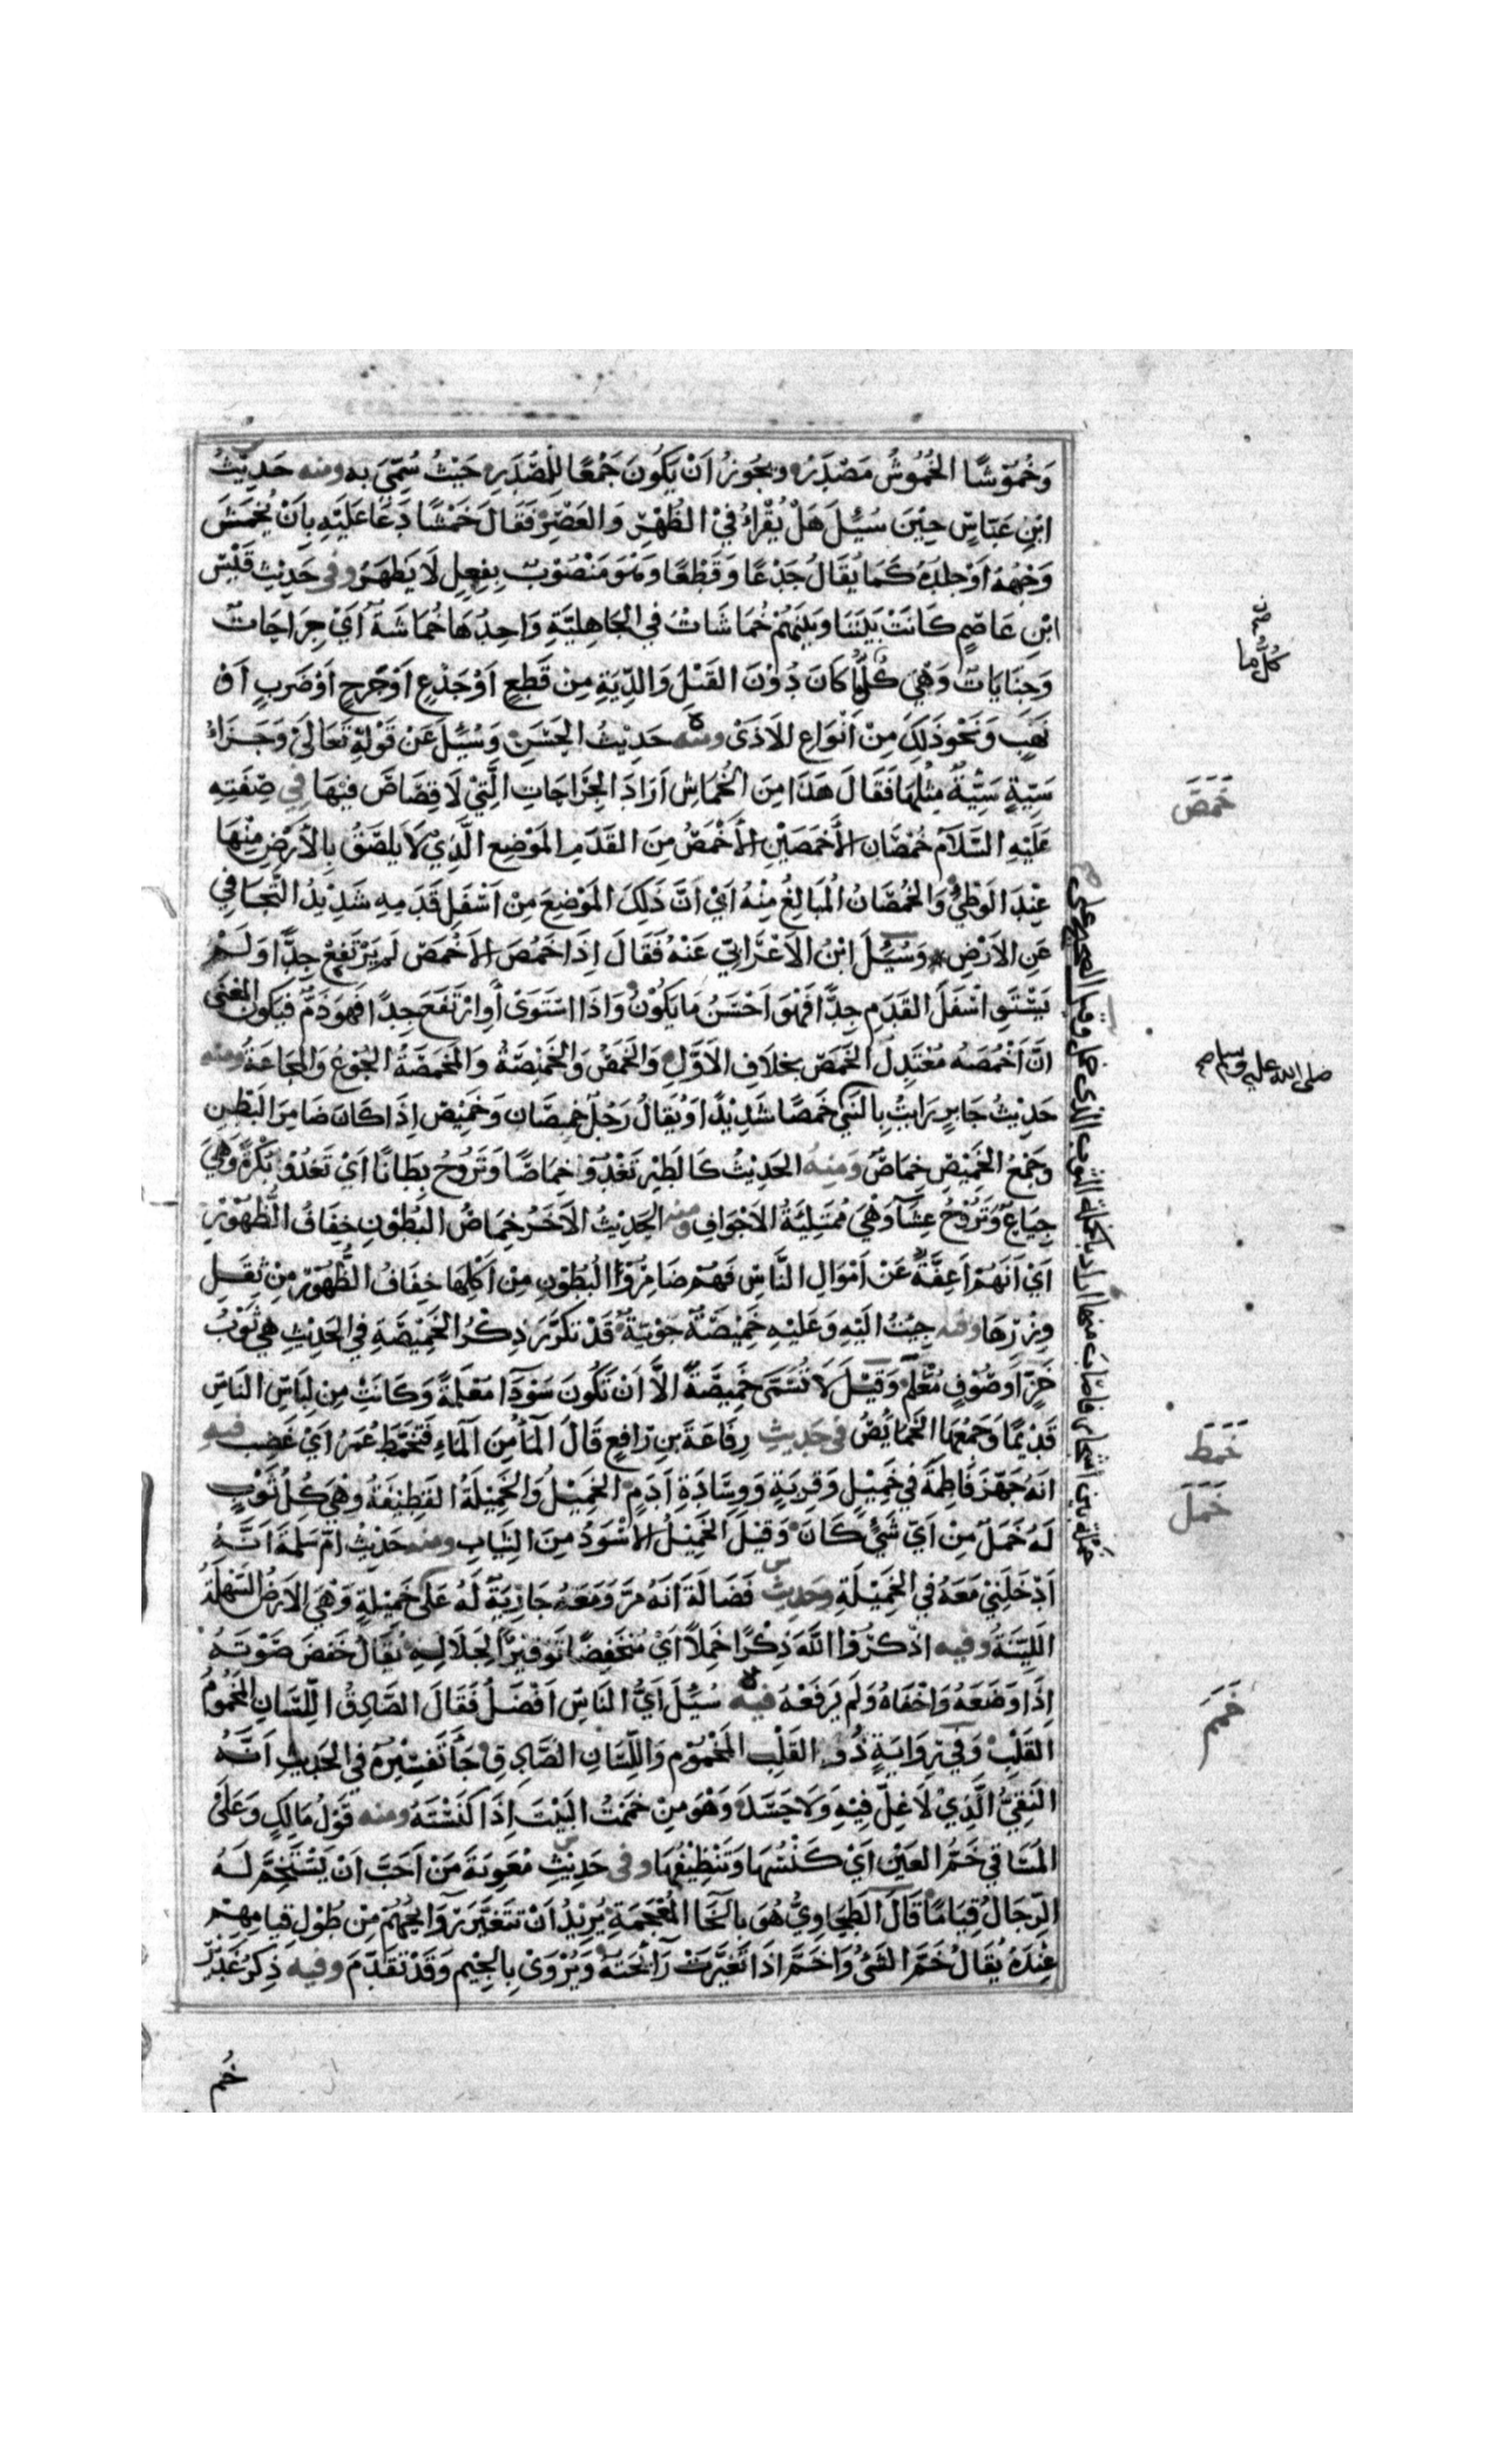 وَخُمُوْشًا الخُمُوشُ مَصْدَرٌ ويَجُوزُ اَنْ يَكُونَ جَمْعًا لِلْمَصْدَرِ حَيْثُ سُمِّيَ بِهِ ومنه حَدِيْثُ
ابْنِ عَبَّاسٍ حِيْنَ سُئِلَ هَلْ يُقْرَاءُ فِيْ الظُّهْرِ وَالعَصْرِ فَقَالَ خَمْشًا دَعَا عَلَيْهِ بِاَنْ يُخْمَشَ
وَجْهُهُ اَوْ جِلدُهُ كَمَا يُقَالُ جَدْعًا وَقَطْعًا وَهُوَ مَنْصُوْبٌ بِفِعْلٍ لَا يَظْهَرُ وفى حَدِيْثِ قَيْسِ
ابْنِ عَاصِمٍ كَانَتْ بَيْنَنَا وَبَيْنَهُمْ خُمَاشَاتٌ فِي الجَاهِلِيَّةِ وَاحِدُهَا خُمَاشَةٌ اَيْ جِرَاحَاتٌ
وَجِنَايَاتٌ وَهْيَ كُلُّمَا كَانَ دُوْنَ القَتْلِ وَالدِّيَةِ مِنْ قَطْعٍ اَوْ جَدْعٍ اَوْ جَرْحٍ اَوْ ضَرْبٍ اَوْ
نَهْبٍ وَنَحْوِ ذَلِكَ مِنْ اَنْوَاعِ الاَذَىْ ومنه حَدِيْثُ الحَسَنِ وَسُئِلَ عَنْ قَوْلِهِ تَعَالَىْ وَجَزَاءُ
سَيِّئَةٍ سَيِّئَةٌ مِثْلُهَا فَقَالَ هَذَا مِنَ الخُمَاشِ اَرَادَ الجِرَاحَاتِ الَّتِيْ لَا قِصَاصَ فِيْهَا فِي صِفَتِهِ
عَلَيْهِ السَّلَامُ خُمْصَانِ الأَخْمَصَيْنِ الأَخْمَصُ مِنَ القَدَمِ المَوْضِعُ الَّذِيْ لَا يَلْصَقُ بِالأَرْضِ مِنْهَا
عِنْدَ الوَطْئِ وَالخُمْصَانُ المُبَالِغُ مِنْهُ اَيْ اَنَّ ذَلِكَ المَوْضِعَ مِنْ اَسْفَلِ قَدَمِهِ شَدِيْدُ التَّجَافِي
عَنِ الاَرْضِ وَسُئِلَ ابْنُ الاَعْرَابِيِّ عَنْهُ فَقَالَ اِذَا خَمُصَ الاَخْمَصُ لَمْ يَرْتَفِعْ جِدًّا وَلَمْ
يَسْتَوِ اَسْفَلَ القَدَمِ جِدًّا فَهْوَ اَحْسَنُ مَا يَكُوْنُ وَاذَا اسْتَوَىْ أَوِ ارْتَفَعَ جِدًّا فَهوَ ذَمٌّ فَيَكُونُ المعْنَى
اَنَّ اَخْمَصَهُ مُعْتَدِلُ الخَمَصِ بِخِلَافِ الاَوَّلِ وَالخَمَصُ وَالخَمْصَةُ وَالمَخْمَصَةُ الجُوْعُ وَالمَجَاعَةُ ومنه
حَدِيْثُ جَابِرٍ رَايْتُ بِالنَّبِي خَمَصًا شَدِيْدًا وَيُقَالُ رَجُلٌ خُمْصَان وَخَمِيْصٌ اِذَا كَانَ ضَامِرَ البَطْنِ
وَجَمْعُ الخَمِيْصِ خِمَاصٌ وَمِنهُ الحَدِيْثُ كَالطَيْرِ تَغْدُوْا خِمَاصًا وَتَرُوْحُ بِطَانًا اَيْ تَغْدُوْا بُكْرَةً وَهْيَ
جِيَاعٌ وَتَرُوْحُ عِشَآءً وَهْيَ مُمْتَلِئَةُ الاَجْوَافِ ومنه الحَدِيْثُ الاَخَرُ خِمَاصُ البُطُوْنِ خِفَافُ الظُّهُوْرِ
اَيْ اَنَّهُمْ اَعِفَّةٌ عَنْ اَمْوَالِ النَّاسِ فَهُمْ ضَامِرُوْا البُطُوْنِ مِنْ اَكْلِهَا خِفَافُ الظُّهُوْرِ مِنْ ثِقَلِ
وِزْرِهَا وفيه جِئْتُ الَيْهِ وَعَلَيْهِ خَمِيْصَةٌ جَوْنِيَّةٌ قَدْ تَكَرَّرَ ذِكْرُ الخَمِيْصَةِ فِي الحَدِيْثِ هِي ثَوْبُ
خَزٍّ اَو صُوْفٍ مُعْلَمٌ وَقِيْلَ لَا تُسَمَّى خَمِيْصَةً الاَّ اَنْ تَكُونَ سَوْدَآ مُعْلَمَةً وَكَانَتْ مِنْ لِبَاسِ النَاسِ
قَدِيْمًا وَجَمْعُهَا الخَمَايُصُ في حَدِيْثِ رِفَاعَةَ بنِ رَافِعٍ قَالَ المَاُ مِنَ المَاءِ فَتَخَمَّطَ عُمَرُ اَيْ غَضِبَ فيه
اَنَهُ جَهَّزَ فَاطِمَةَ فِي خَمِيْلٍ وَقِرْبَةٍ وَوِسَادَةِ اَدَمٍ الخَمِيْلُ وَالخَمِيْلَةُ القَطِيْفَةُ وَهْيَ كُلُّ ثَوْبٍ
لَهُ خَمَلٌ مِنْ اَيِّ شَيْءٍ كَانَ وَقِيْلَ الخَمِيْلُ الاَسْوَدُ مِنَ الثِيَابِ ومنه حَدِيْثُ اُمِّ سَلَمَةَ اَنَّهُ
اَدْخَلَنِيْ مَعَهُ فِي الخَمِيْلَةِ وحَدِيث فَضَالَةَ اَنَهُ مَرَّ وَمَعَهُ جَارِيَةٌ لَهُ عَلَى خَمِيْلَةٍ وَهْيَ الاَرْضُ السَّهْلَةُ
اللَيِّنَةُ وفيه اذْكُرُوْا اللَّهَ ذِكْرًا خَمِلًا اَيْ مُنْخَفِضًا تَوْقِيْرًا لِجَلَالِهِ يُقَالُ خَفَضَ صَوْتَهُ
اِذَا وَضَعَهُ وَاخْفَاهُ وَلَمْ يَرْفَعْهُ فيه سُئِلَ اَيُّ النَّاسِ اَفْضَلُ فَقَالَ الصَّادِقُ اللِّسَانِ المَخْمُومُ
القَلْبِ وَفِي رِوَايَةٍ ذُوْ القَلْبِ المَخْمُوْمِ وَاللِّسَانِ الصَّادِقِ جَآءَ تَفْسِيْرُهُ فِي الحَدِيْثِ اَنَّهُ
النَقِيُّ الَّذِيْ لَا غِلَّ فِيْهِ وَلَا حَسَدَ وَهْوَ مِنْ خَمَمْتُ البَيْتَ اِذَا كَنَسْتَهُ ومنه قَوْلُ مَالِكٍ وَعَلَىْ
المُسَاقِي خَمُّ العَيْنِ اَيْ كَنْسُهَا وَتَنْظِيْفُهَا وفى حَدِيْثِ مُعٰوِيَةَ مَنْ اَحَبَّ اَنْ يَسْتَخِمَّ لَهُ
الرِّجَالُ قِيَامًا قَالَ الطَحَاوِيُّ هُوَ بِالخَآ المُعْجَمَةِ يُرِيْدُ اَنْ تَتَغَيَّرَ رَوَائِحُهُمْ مِنْ طُوْلِ قِيامِهِمْ
عِنْدَهُ يُقَالُ خَمَّ الشَيْءُ وَاخَمَّ اذَا تَغَيَّرَتْ رَآئِحَتُهُ وَيُرْوَىْ بِالجِيْمِ وَقَدْ تَقَدَّمَ وفيه ذِكرُ غَدِيْرِ
خُم
كُلُّ ما
خَمَصَ
صلى الله عليه وسلم صح
خَمَطَ
خَمَلَ
خَمَمَ